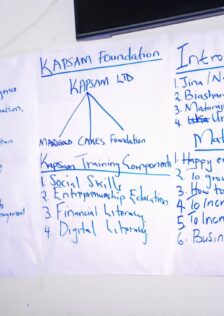 KAPSAM Foundation
KAPSAM LTD
CAKES Foundation
Kapsam Training Components
1. Social Skills
2. Entrepreneurship Education
3. Financial Literacy
4. Digital Literacy
Intro
1. Jina / N
2. Biashar
3. Matara
4.
Mat
1. Happy en
2. To grow
3. How to
4. To Inc
5. To Incr
6. Busin